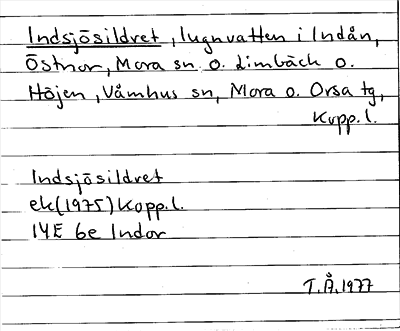 Indsjösildret, lugnvatten i Indån,
Östnor, Mora sn o. Limbäck o.
Höjen, Våmhus sn, Mora o. Orsa tg,
Kopp.l.
Indsjösildret
ek(1975) Kopp.l.
14E 6e Indor
T.Å. 1977